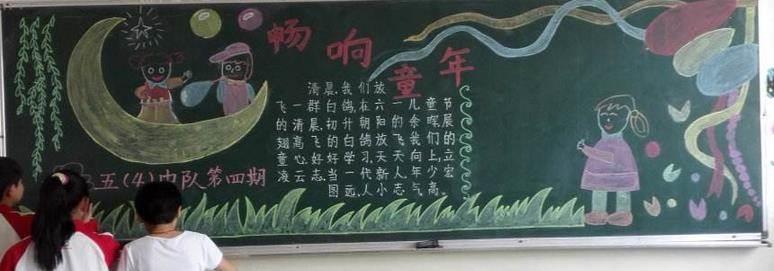 畅响童年
清晨,我们放
飞一群白鸽,在六一儿童节
的清晨,初升朝阳的余晖,展
翅高飞的白鸽,放飞我们的
童心,好好学习,天天向上,立
凌云志,当一代新人,年少宏
图远,人小志气高。
五(4)中队第四期